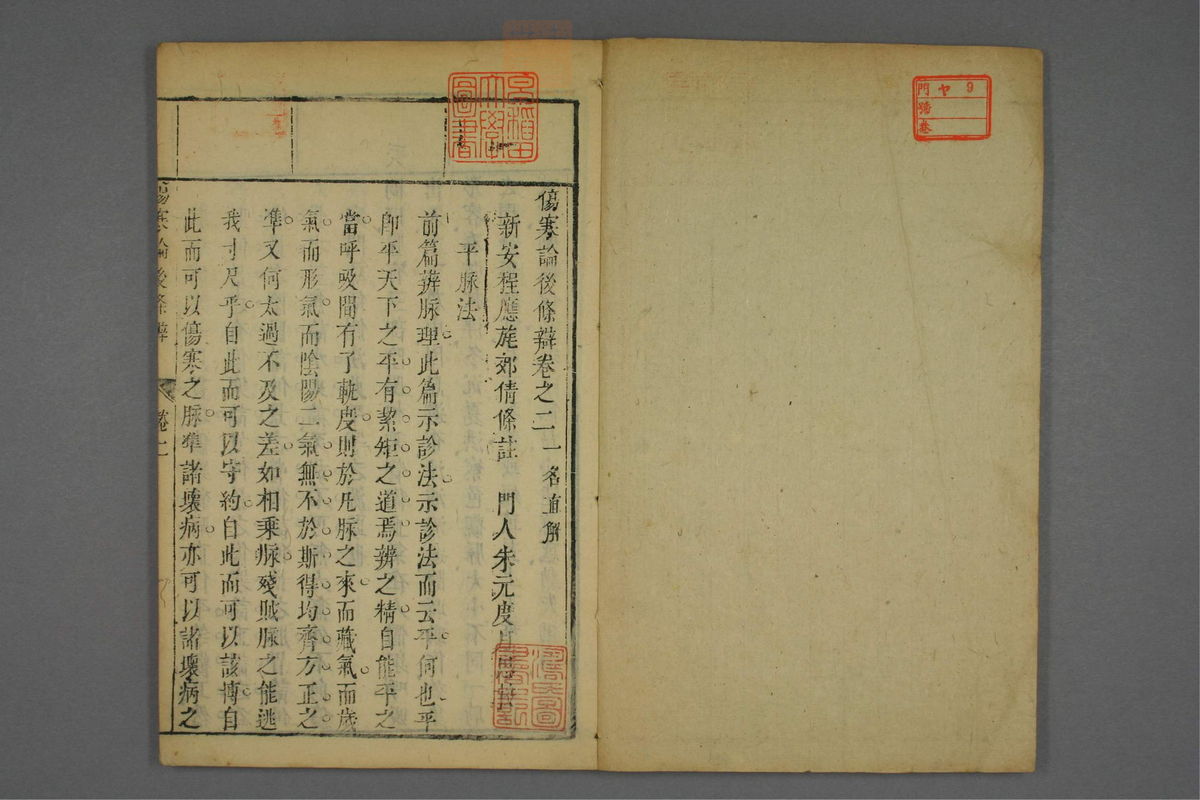 傷寒論後條辯卷之二 一名直解
新安程應旄郊倩條註 門人朱元度
平脉法
前篇辨脉理此篇示診法示診法而云平何也平
卽平天下之平有絜矩之道焉辨之精自能平之
當呼吸間有了軌度則於凡脉之來而藏氣而歲
氣而形氣而陰陽二氣無不於斯得均齊方正之
準又何太過不及之差如相乘脉殘賊脉之能逃
我寸尺乎自此而可以守約自此而可以該博自
此而可以傷寒之脉準諸壞病亦可以諸壞病之
傷寒論後條辨 卷二
早稻田大學圖書
門 ヤ 9
號
卷